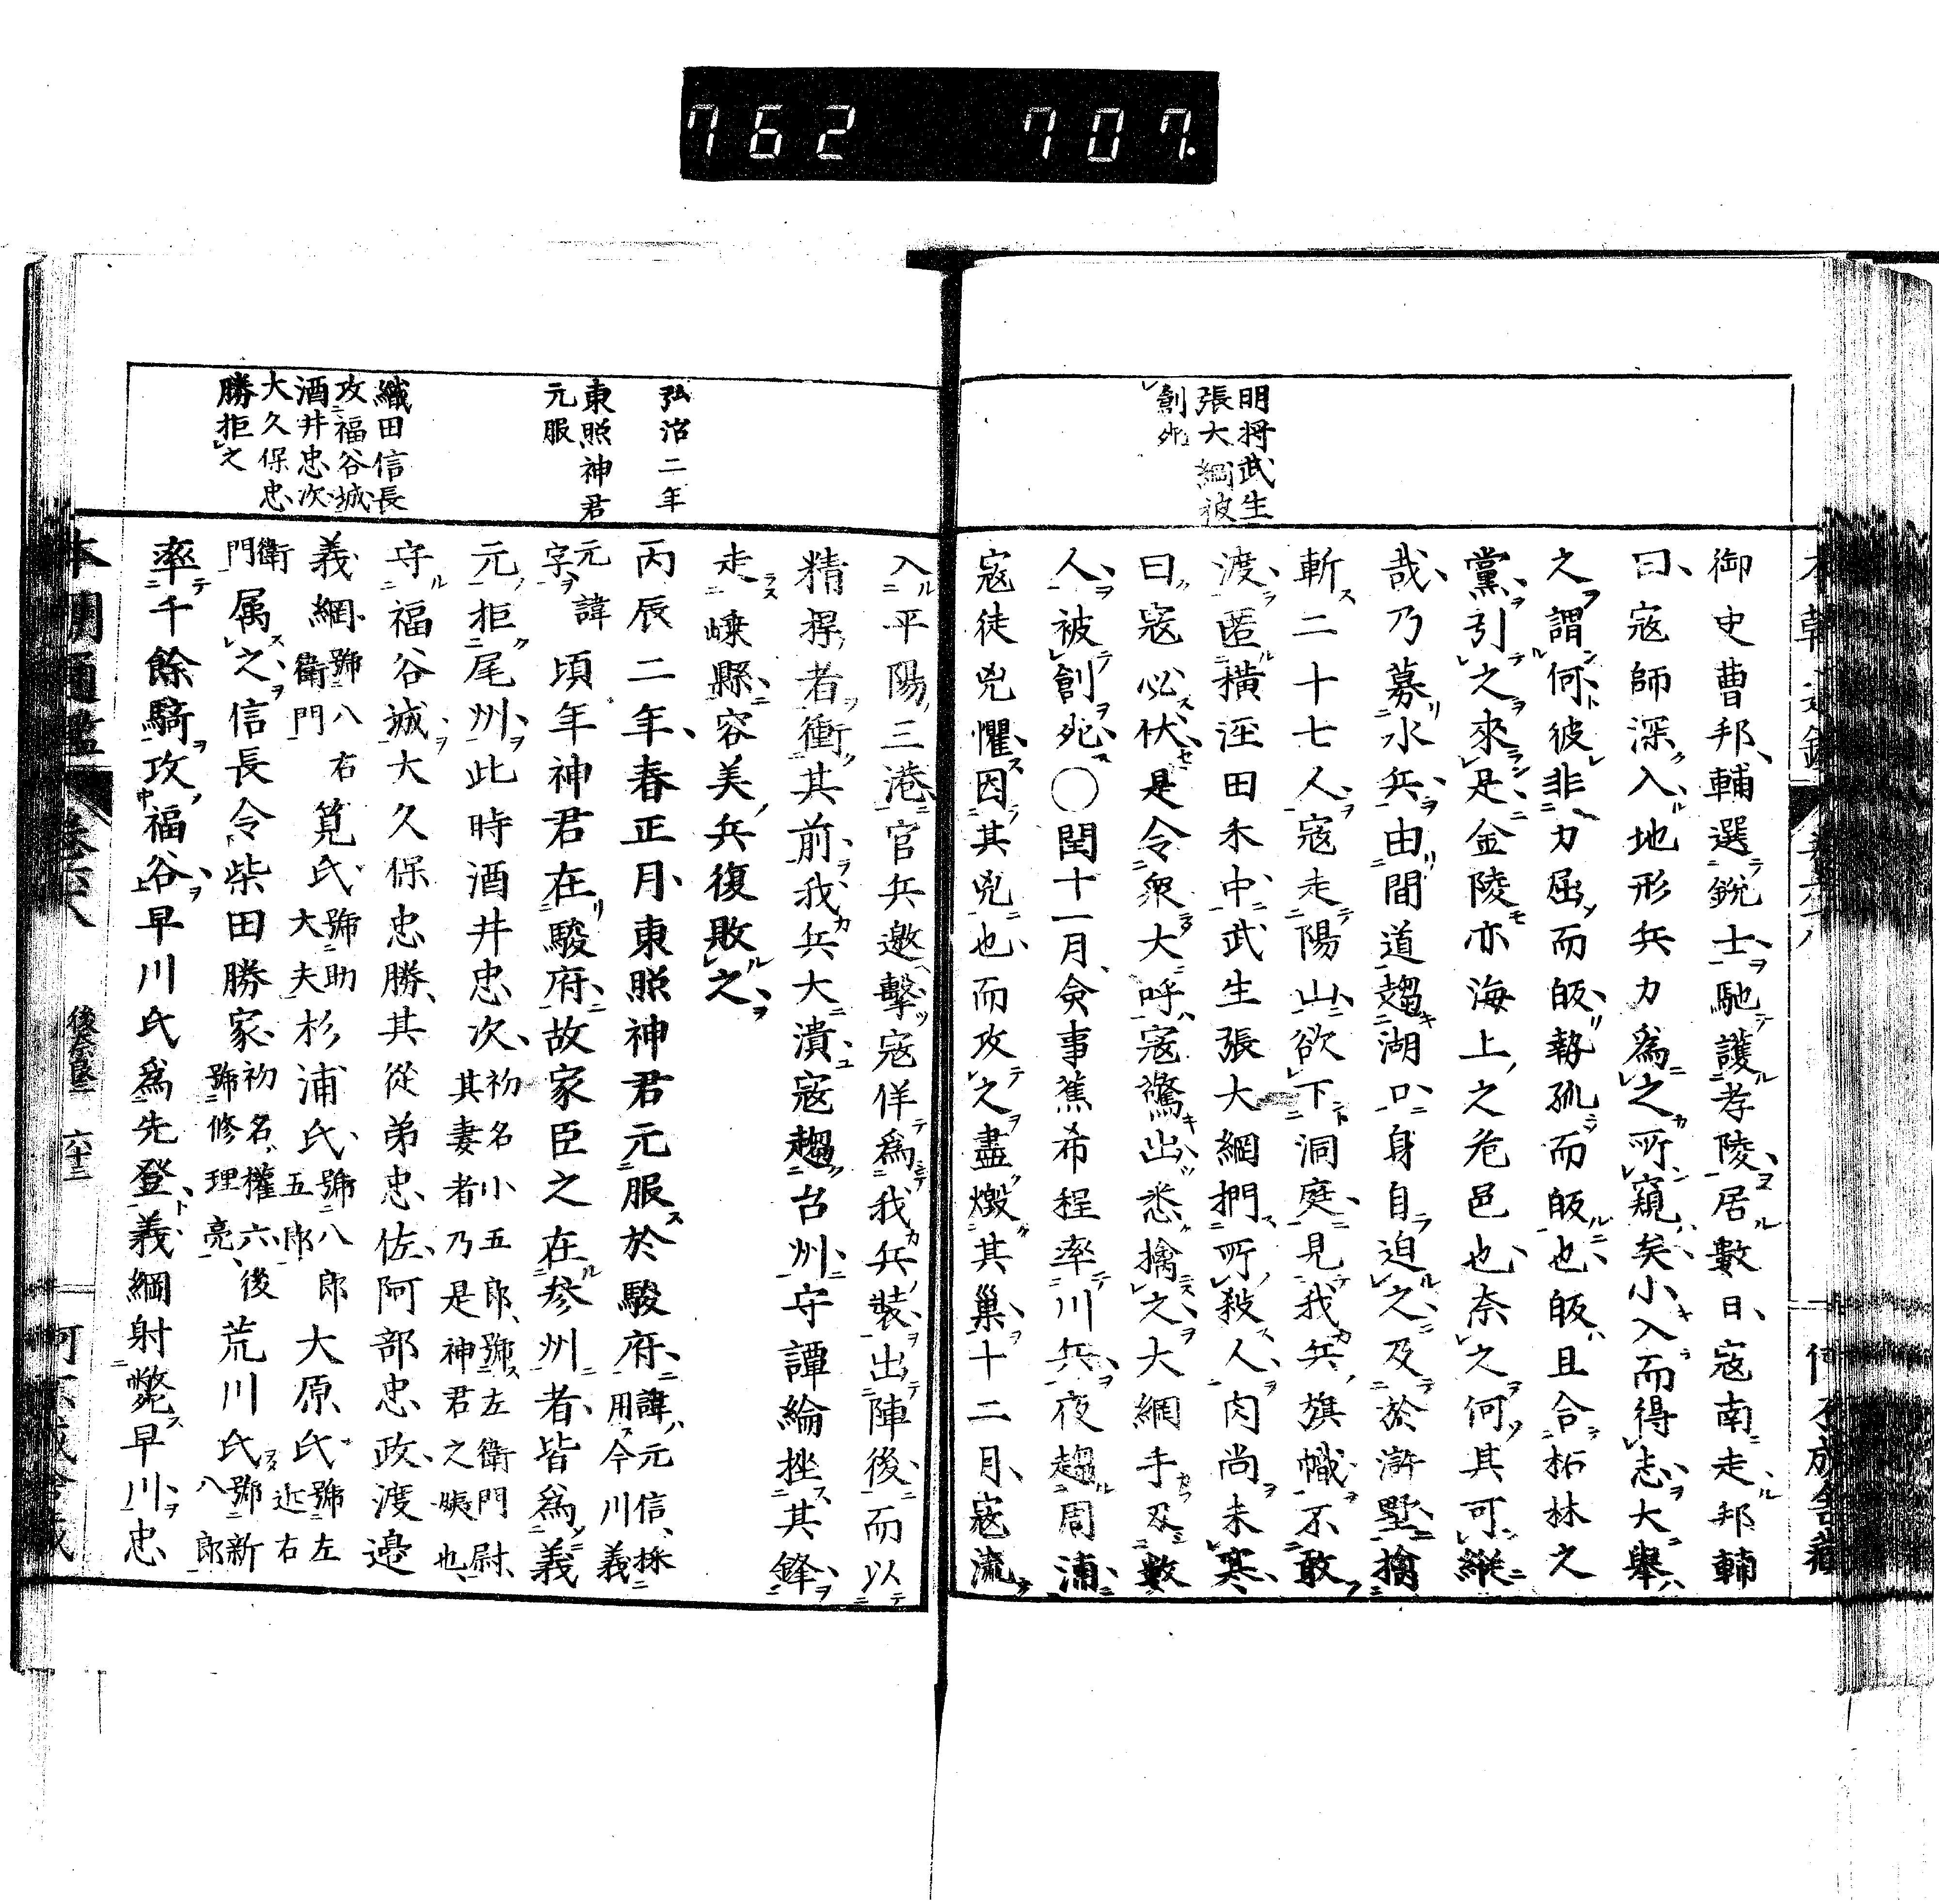 762 707.
明将武生
張大綱被
創死
御史曹邦輔選鋭士馳護孝陵居數日寇南走邦輔
曰寇師深入地形兵力爲之所窺矣小入而得志大擧
之謂何彼非力屈而皈勢孤而皈也皈且合柘林之
黨引之來是金陵亦海上之危邑也奈之何其可縱
哉乃募水兵由間道趨湖口身自迫之及於滸墅擒
斬二十七人寇走陽山欲下洞庭見我兵旗幟不敢
渡匿橫涇田禾中武生張大綱捫所殺人肉尚未寒
曰寇必伏是令衆大呼寇驚出悉擒之大綱手及數
人被創死〇閏十一月僉事蕉希程率川兵夜趨周浦
寇徒兇懼因其兇也而攻之盡燬其巢十二月寇流
入平陽三港官兵邀擊寇佯爲我兵裝出陣後而以
精捍者衝其前我兵大潰寇趨台州守譚綸挫其鋒
走嵊縣容美兵復敗之
弘治二年
東照神君
元服
織田信長
攻福谷城
酒井忠次
大久保忠
勝拒之
丙辰二年春正月東照神君元服於駿府諱元信採用今川義
元諱字頃年神君在駿府故家臣之在參州者皆爲義
元拒尾州此時酒井忠次初名小五郎號左衛門尉其妻者乃是神君之姨也
守福谷城大久保忠勝其從弟忠佐阿部忠政渡邉
義綱號八右衛門筧氏號助大夫杉浦氏號八郎五郎大原氏號左近右
衛門属之信長令柴田勝家初名權六後號修理亮荒川氏號新八郎
率千餘騎攻福谷早川氏爲先登義綱射斃早川忠
本朝通鑑
後奈良三
六十三